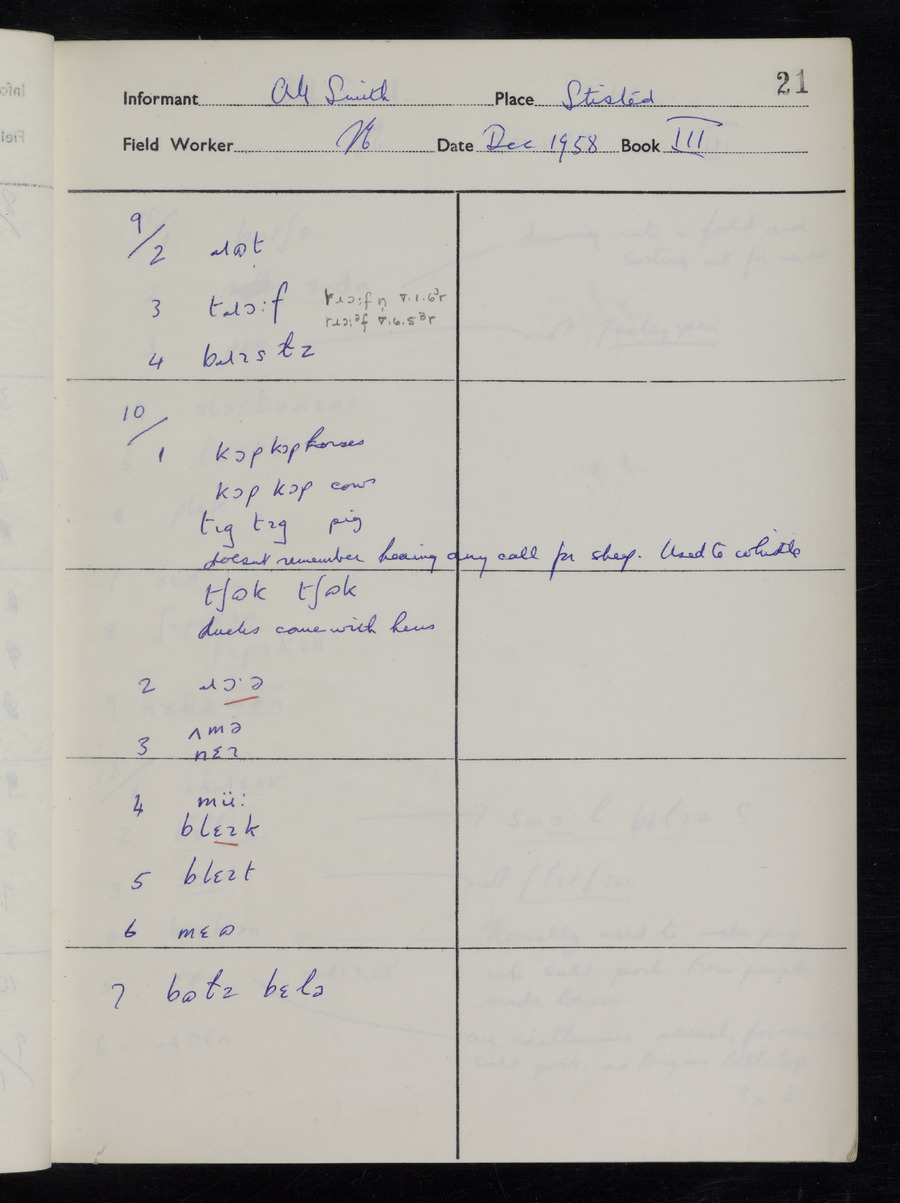 21
Informant Smith Place Stisted
Field Worker Date Dec 1958 Book III
9/
2 ɹɷt
3 tɹɔ:f
4 bɹɪstɪ
10/
1 kɔp kɔp horses
kɔp kɔp cows
tɪg tɪg pig
doesnt remember hearing any call for sheep. Used to whistle
tʃɷk tʃɷk
ducks come with hens
2 ɹɔ·ə
3 ʌmə
nɛɪ
4 mü:
blɛɪk
5 blɛɪt
6 mɛɷ
7 bɷtɪ bɛlə